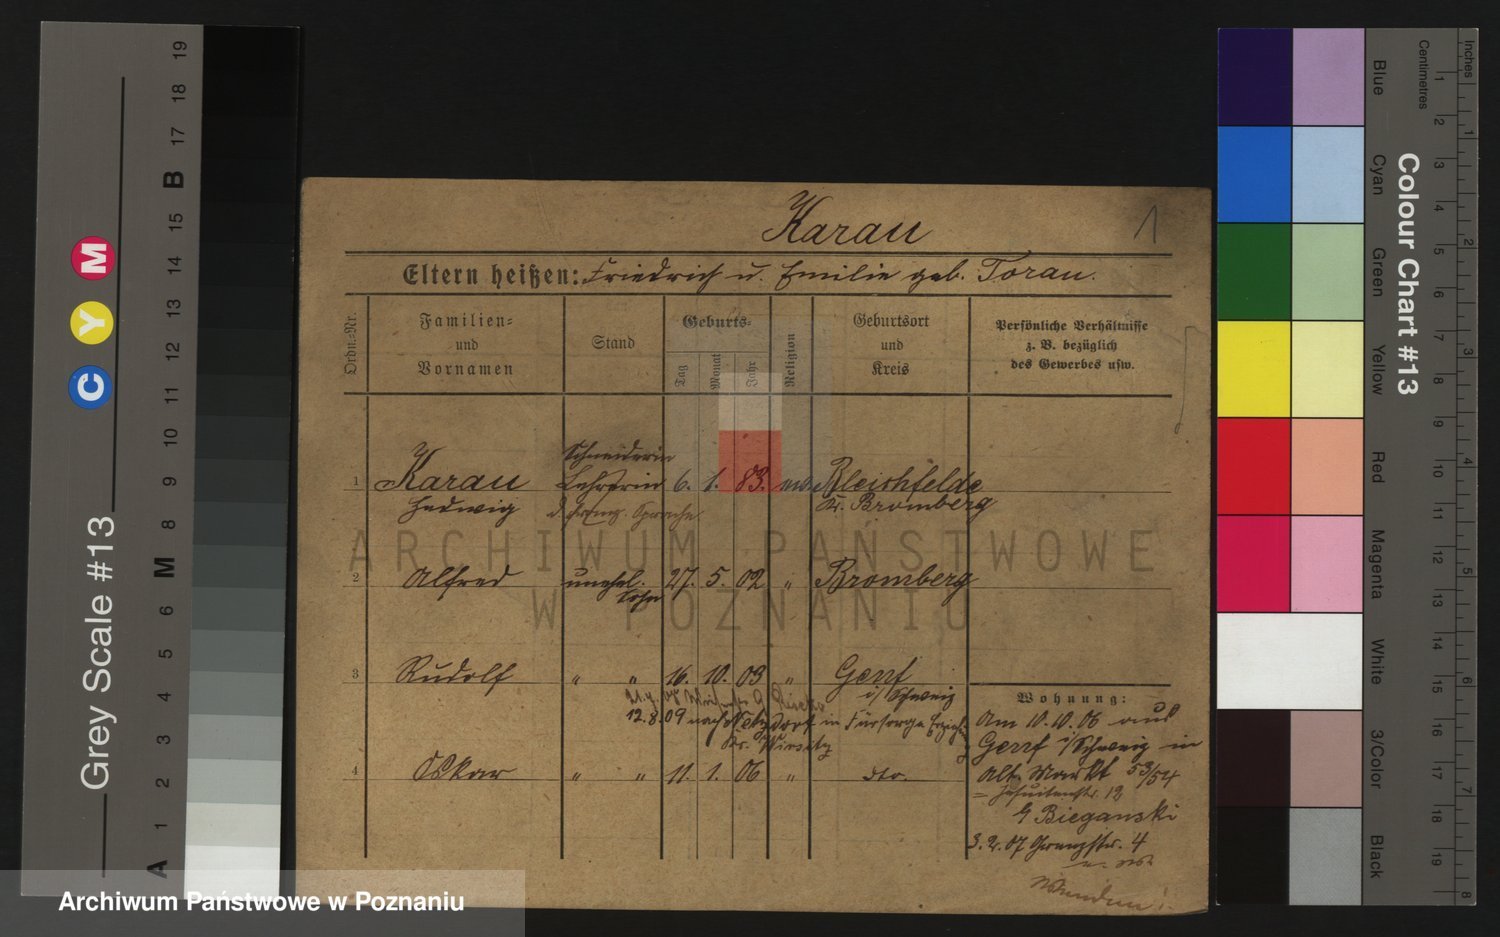 Karau
1
Eltern heißen: Friedrich u. Emilie geb. Torau.
Ordn.-Nr.
Familien- und Vornamen
Stand
Geburts-
Tag
Monat
Jahr
Religion
Geburtsort und Kreis
Persönliche Verhältnisse
z. B. bezüglich
des Gewerbes usw.
Schneiderin
1 Karau Lehrerin 6. 1. 83. Bleichfelde
Hedwig d. franz. Sprache Kr. Bromberg
2 Alfred unehel. 27. 5. 02 " Bromberg
Sohn
3 Rudolf " " 16. 10. 03 " Genf
i/Schweiz
12.8.09 nach Netzdorf in Fürsorge Erziehg
Kr. Wirsitz
4 Oskar " " 11. 1. 06 " dto.
Wohnung:
Am 10.10.06 aus
Genf i/Schweiz in
Alt. Markt 53/54
= Jesuitenstr. 12
b/ Bieganski
3.2.07 Grenzstr. 4
Wenden!
ARCHIWUM PAŃSTWOWE
W POZNANIU
Archiwum Państwowe w Poznaniu
Grey Scale #13
C Y M
A 1 2 3 4 5 6 M 8 9 10 11 12 13 14 15 B 17 18 19
Colour Chart #13
Blue
Cyan
Green
Yellow
Red
Magenta
White
3/Color
Black
Inches
1 2 3 4 5 6 7 8
Centimetres
1 2 3 4 5 6 7 8 9 10 11 12 13 14 15 16 17 18 19